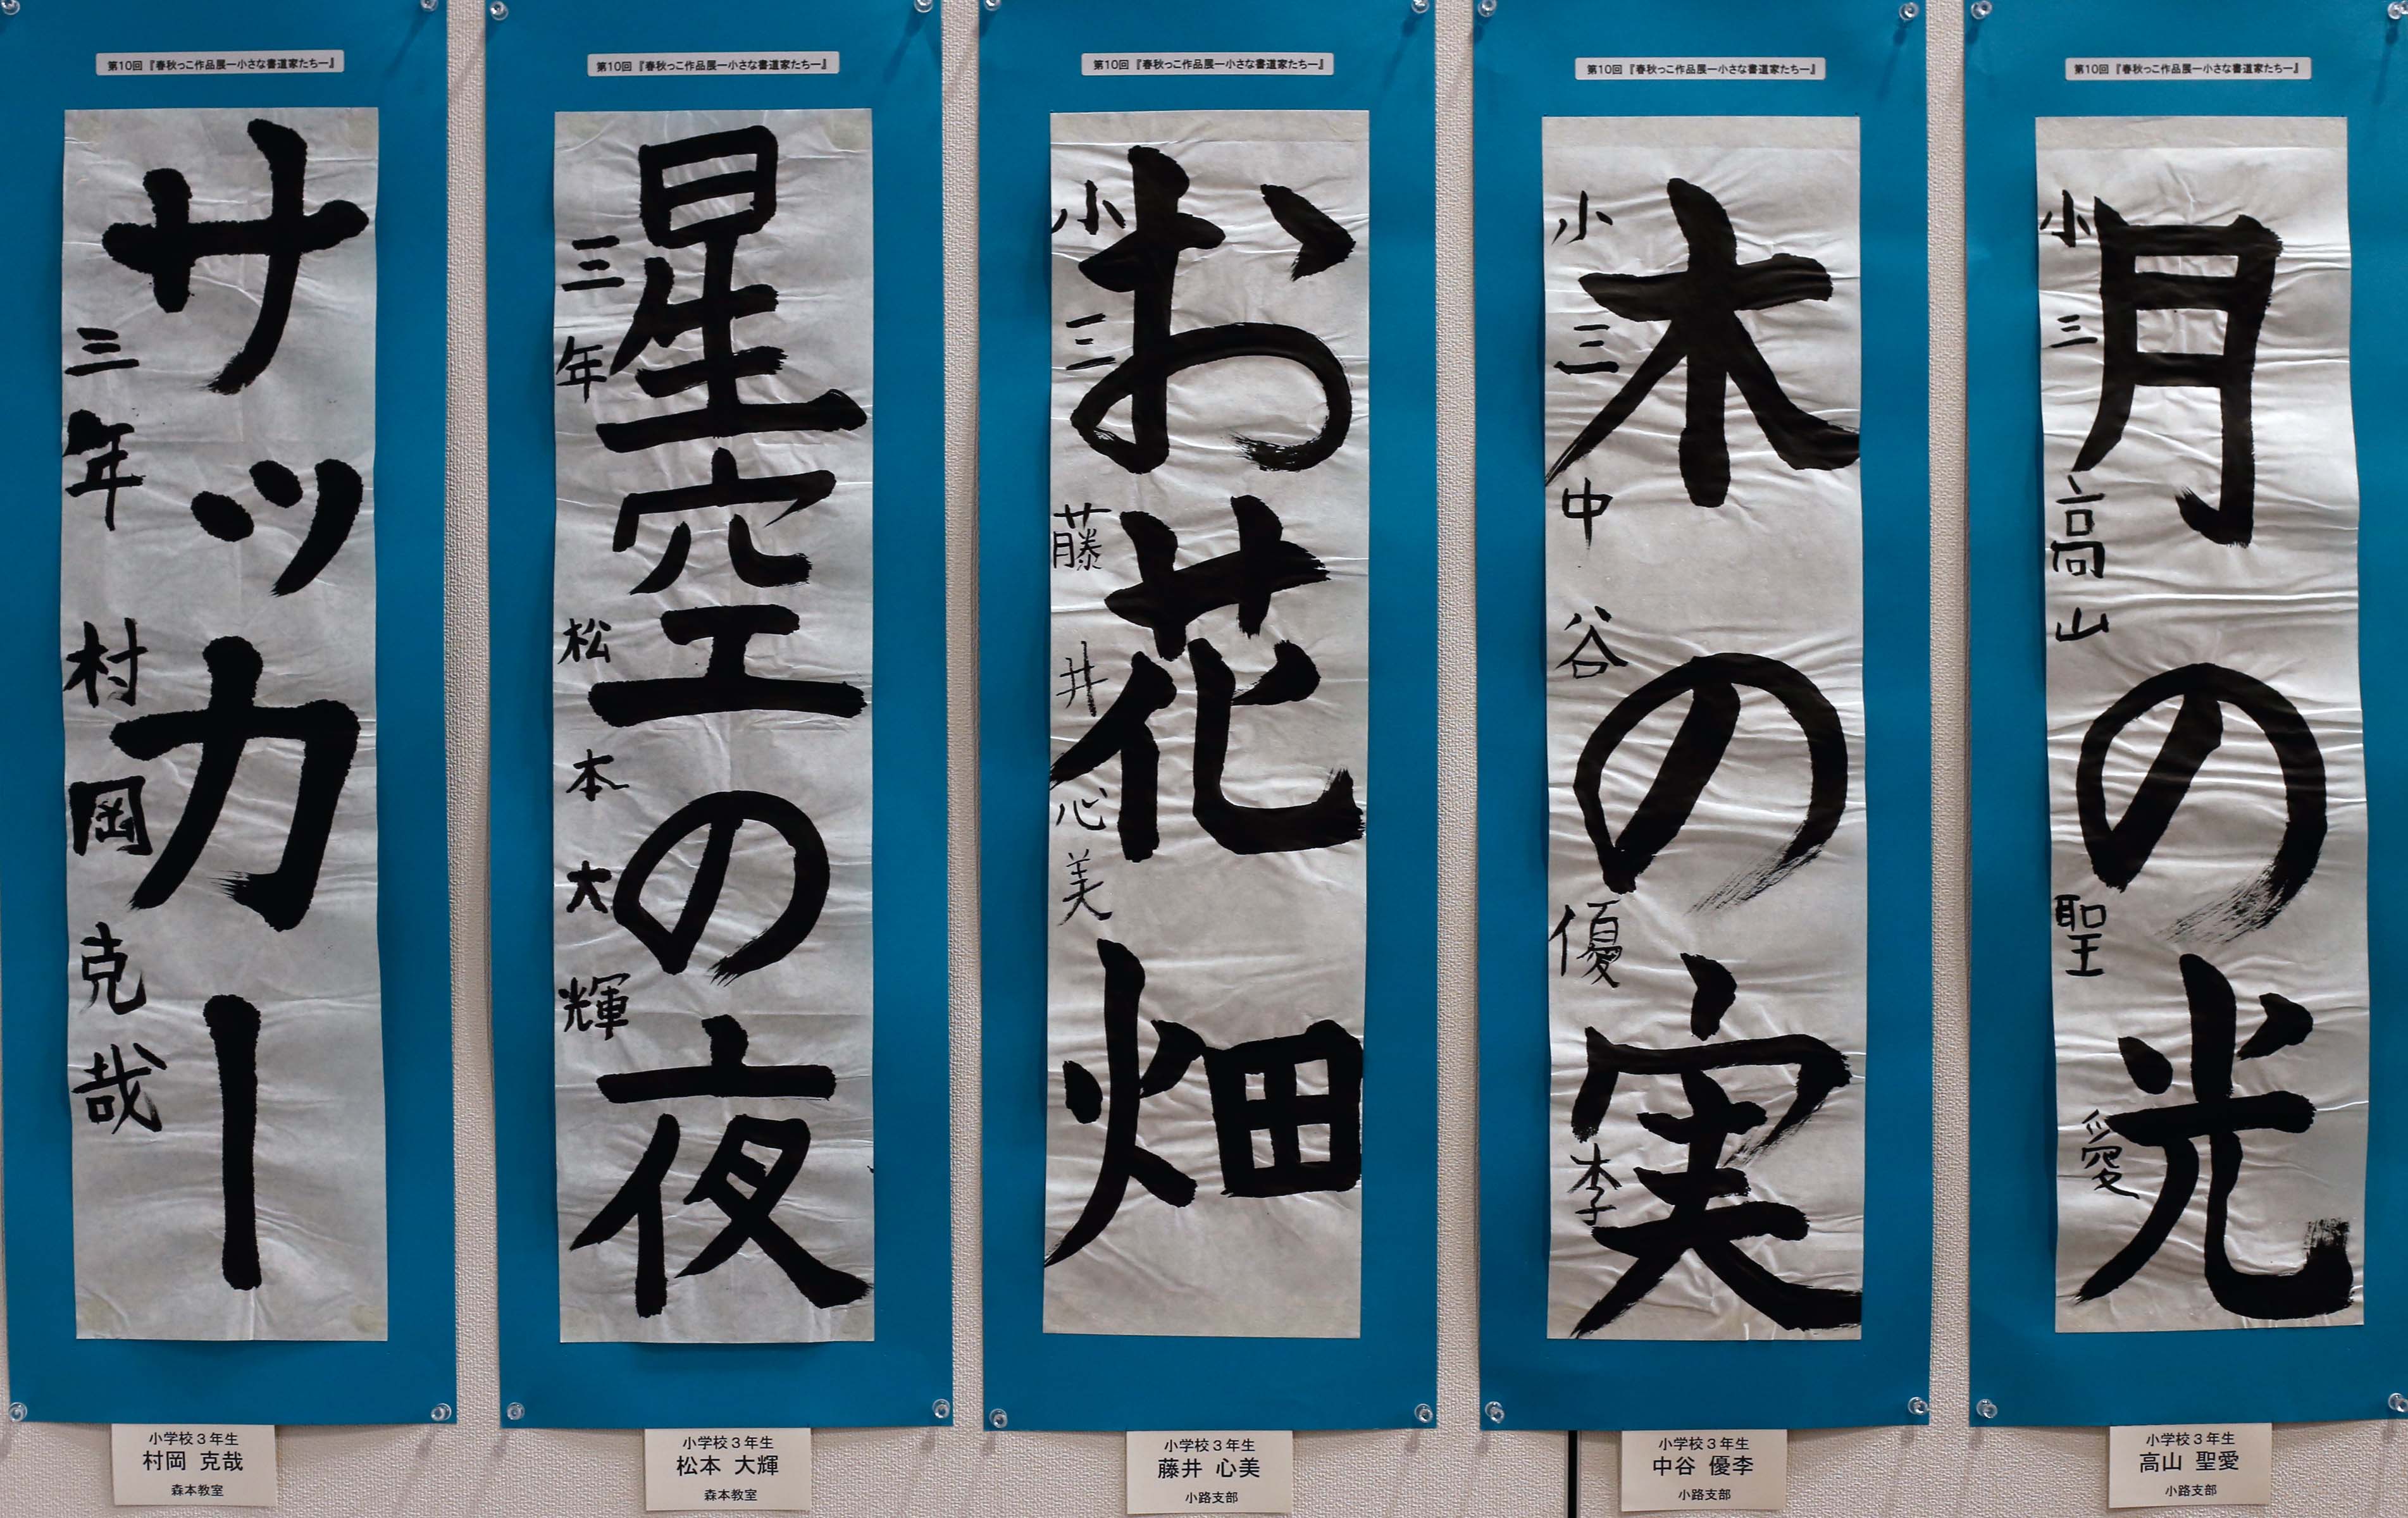 第10回『春秋っこ作品展ー小さな書道家たちー』
サッカー
三年 村岡克哉
小学校3年生
村岡 克哉
森本教室
第10回『春秋っこ作品展ー小さな書道家たちー』
星空の夜
三年 松本大輝
小学校3年生
松本 大輝
森本教室
第10回『春秋っこ作品展ー小さな書道家たちー』
お花畑
小三 藤井心美
小学校3年生
藤井 心美
小路支部
第10回『春秋っこ作品展ー小さな書道家たちー』
木の実
小三 中谷優李
小学校3年生
中谷 優李
小路支部
第10回『春秋っこ作品展ー小さな書道家たちー』
月の光
小三 高山聖愛
小学校3年生
高山 聖愛
小路支部